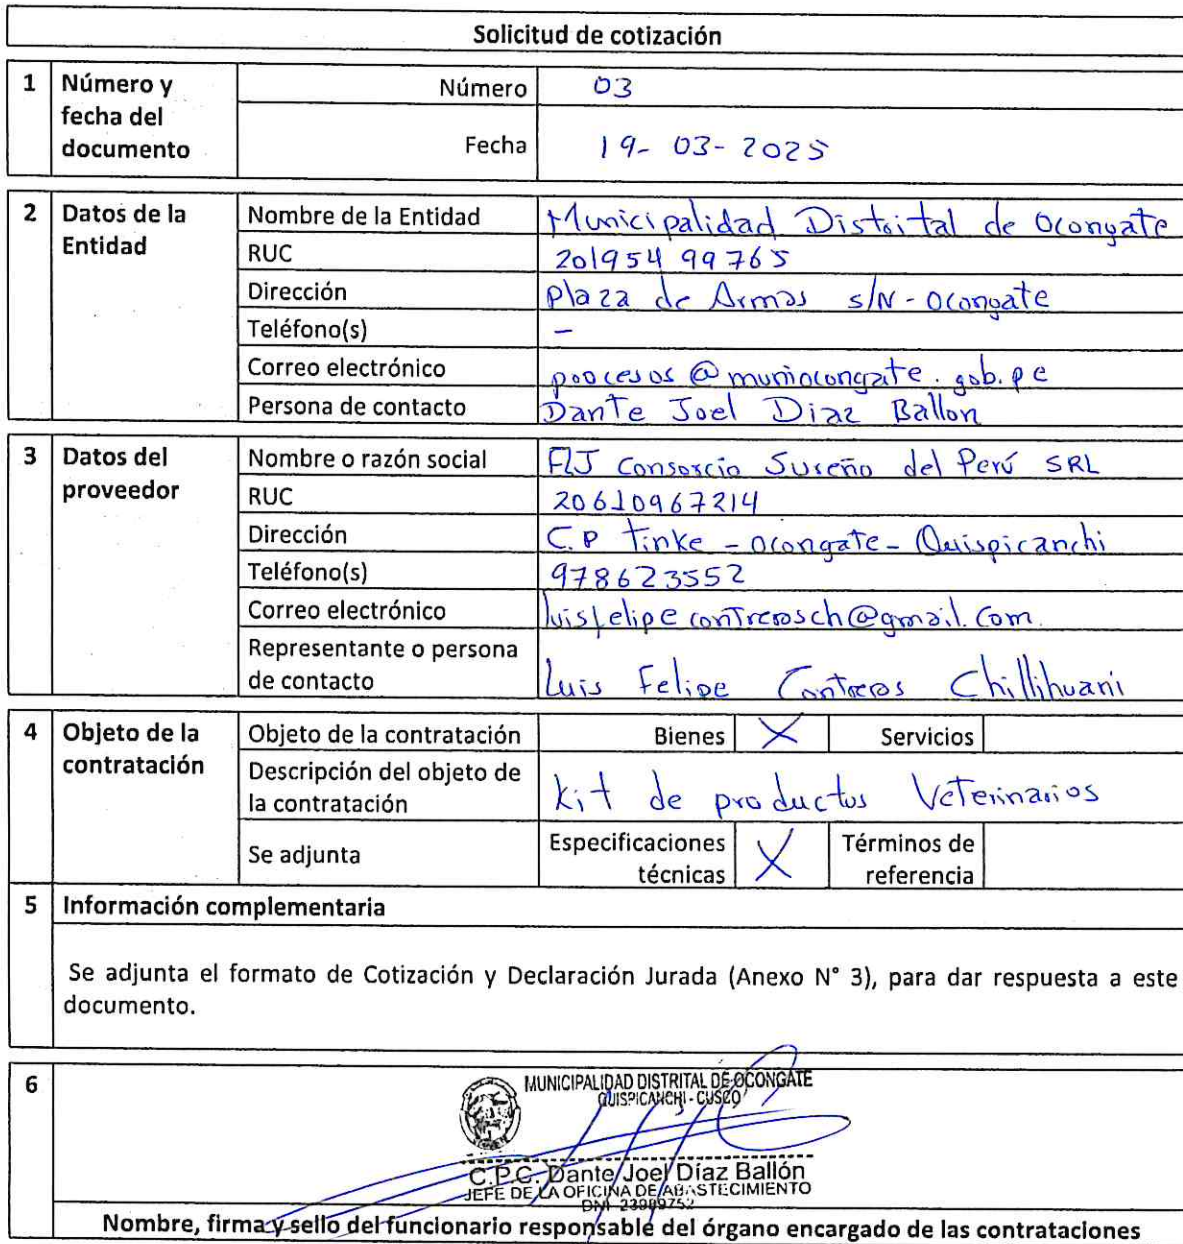 Solicitud de cotización
1 Número y fecha del documento
Número 03
Fecha 19-03-2025
2 Datos de la Entidad
Nombre de la Entidad Municipalidad Distrital de Ocongate
RUC 20195499765
Dirección Plaza de Armas s/N - Ocongate
Teléfono(s) -
Correo electrónico procesos@muniocongate.gob.pe
Persona de contacto Dante Joel Diaz Ballon
3 Datos del proveedor
Nombre o razón social FLJ Consorcio Sureño del Perú SRL
RUC 20610967214
Dirección C.P Tinke - Ocongate - Quispicanchi
Teléfono(s) 978623552
Correo electrónico luisfelipecontrerasch@gmail.com.
Representante o persona de contacto Luis Felipe Contreras Chillihuani
4 Objeto de la contratación
Objeto de la contratación Bienes X Servicios
Descripción del objeto de la contratación Kit de productos Veterinarios
Se adjunta Especificaciones técnicas X Términos de referencia
5 Información complementaria
Se adjunta el formato de Cotización y Declaración Jurada (Anexo N° 3), para dar respuesta a este
documento.
6
MUNICIPALIDAD DISTRITAL DE OCONGATE
QUISPICANCHI - CUSCO
C.P.C. Dante Joel Díaz Ballón
JEFE DE LA OFICINA DE ABASTECIMIENTO
DNI 23989752
Nombre, firma y sello del funcionario responsable del órgano encargado de las contrataciones